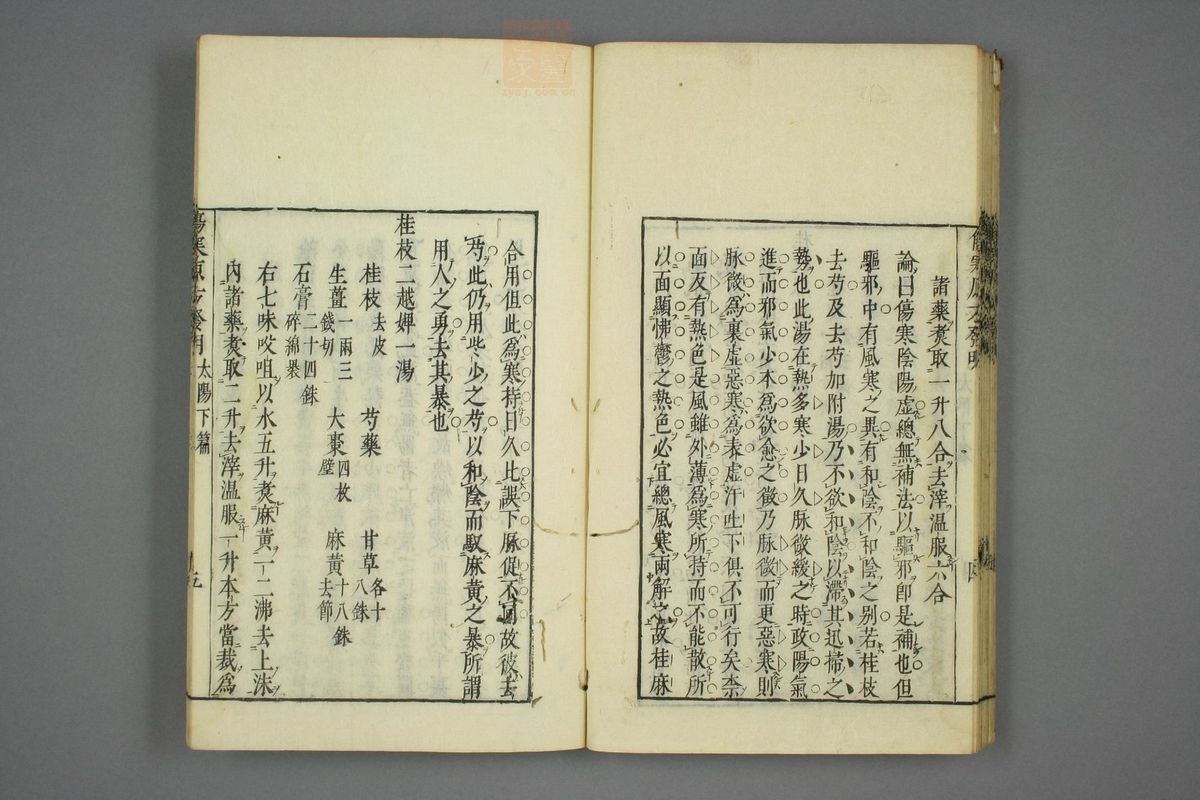 諸藥煑取一升八合去滓溫服六合
論曰傷寒陰陽虛總無補法以驅邪卽是補也但
驅邪中有風寒之異有和陰不和陰之别若桂枝
去芍及去芍加附湯乃不欲和陰以滯其迅掃之
勢也此湯在熱多寒少日久脉微緩之時政陽氣
進而邪氣少本爲欲愈之徵乃脉微而更惡寒則
脉微爲裏虛惡寒爲表虛汗吐下俱不可行矣柰
面反有熱色是風雖外薄爲寒所持而不能散所
以面顯怫鬱之熱色必宜總風寒兩解之故桂麻
傷寒原方發明
四
合用但此爲寒持日久比誤下脉促不同故彼去
芍此仍用些少之芍以和陰而馭麻黃之暴所謂
用人之勇去其暴也
桂枝二越婢一湯
桂枝去皮 芍藥 甘草各十八銖
生薑一兩三錢切 大棗四枚擘 麻黃十八銖去節
石膏二十四銖碎綿裹
右七味㕮咀以水五升煑麻黃一二沸去上沫
内諸藥煑取二升去滓溫服一升本方當裁爲
傷寒原方發明 太陽下篇
zycj.com.cn